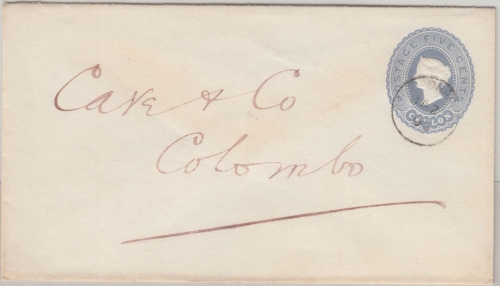 Cave & Co
Colombo
POSTAGE FIVE CENTS
CEYLON